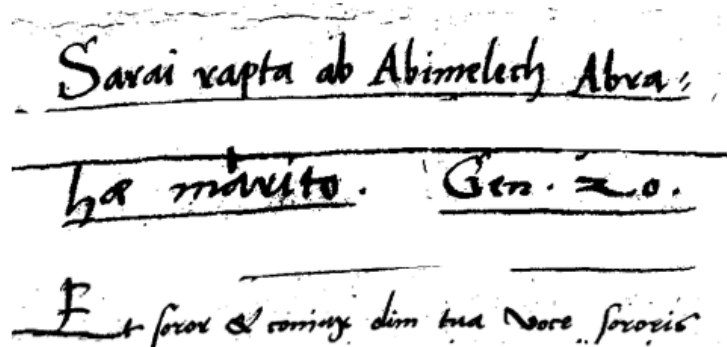 Sarai rapta ab Abimelech Abra-
hæ marito. Gen. 20.
Et soror & coniux dim tua voce sororis